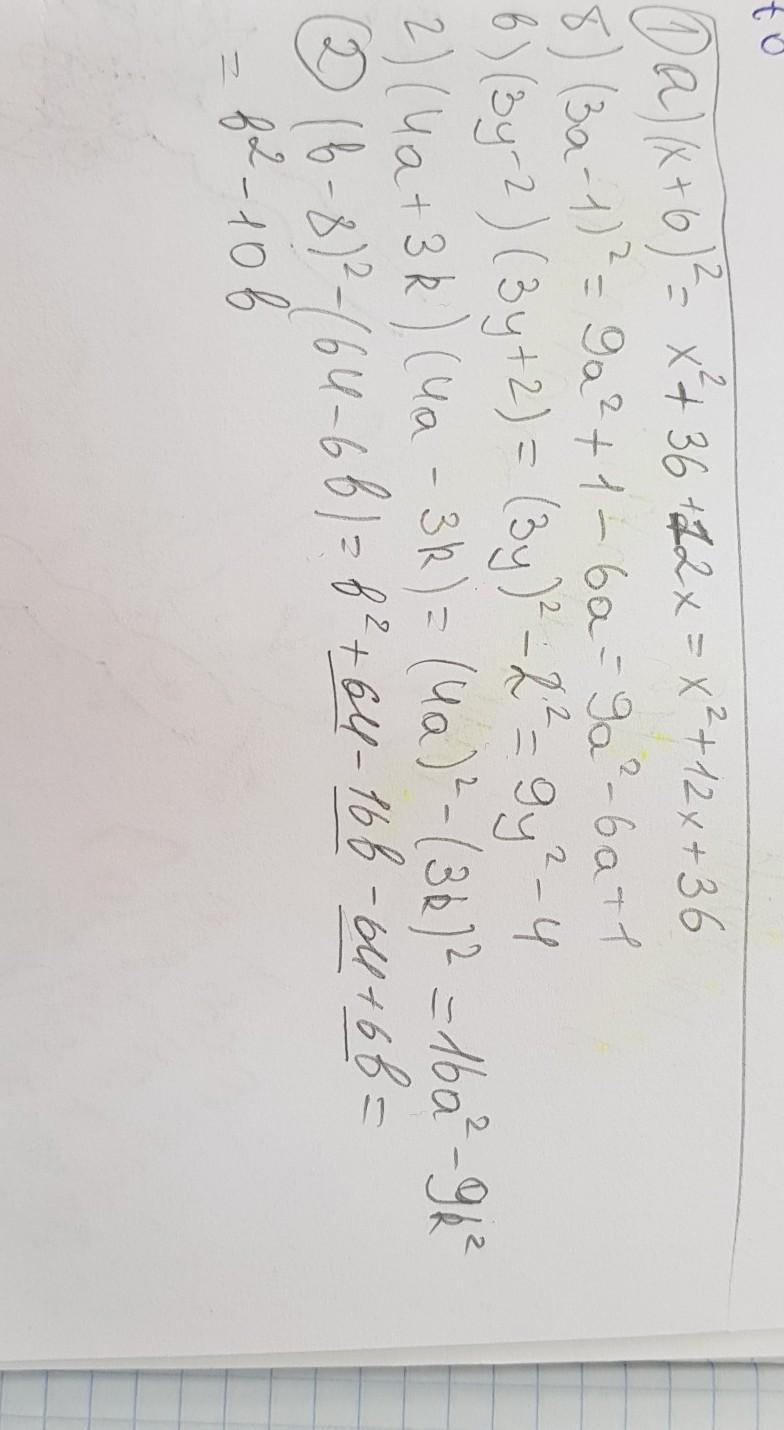 to
① а) (x+6)² = x² + 36 + 12x = x² + 12x + 36
б) (3a-1)² = 9a² + 1 - 6a = 9a² - 6a + 1
в) (3y-2)(3y+2) = (3y)² - 2² = 9y² - 4
г) (4a+3k)(4a-3k) = (4a)² - (3k)² = 16a² - 9k²
② (b-8)² - (64-6b) = b² + 64 - 16b - 64 + 6b =
= b² - 10b